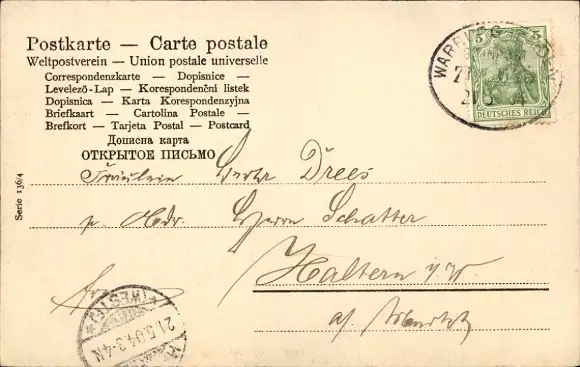 Postkarte — Carte postale
Weltpostverein — Union postale universelle
Correspondenzkarte — Dopisnice —
Levelező-Lap — Korespondenční listek
Dopisnica — Karta Korespondenzyjna
Briefkaart — Cartolina Postale —
Brefkort — Tarjeta Postal — Postcard
Дописна карта
ОТКРЫТОЕ ПИСЬМО
5 5
DEUTSCHES REICH
Fräulein Berta Drees
p. Adr. Herrn Schatter
Haltern i/W.
Serie 136/4
(WESTF)
21.5.04.3-4N.